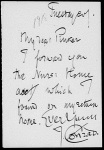 Tuesday
My dear Pinker
I forward you
the Nurses Home
acct which I
found on my return
home. Ever Yours
J Conrad